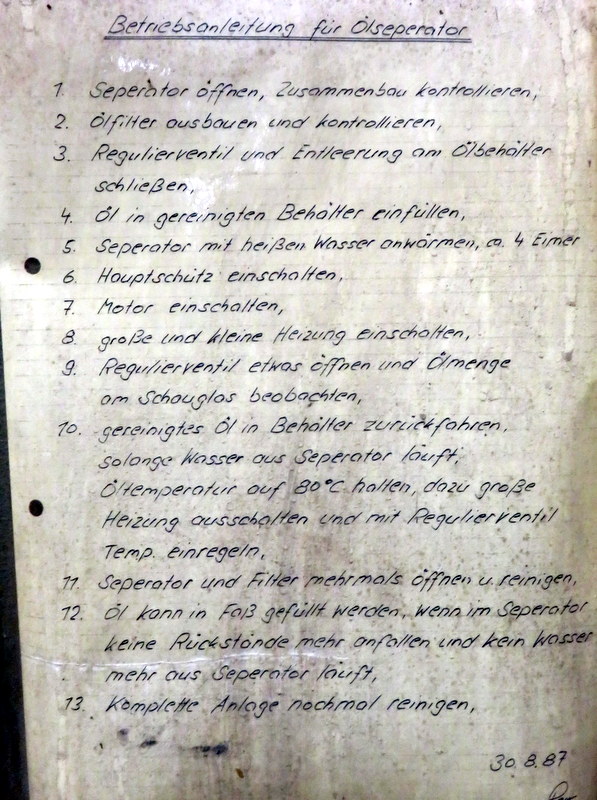 Betriebsanleitung für Ölseperator
1. Seperator öffnen, Zusammenbau kontrollieren,
2. Ölfilter ausbauen und kontrollieren,
3. Regulierventil und Entleerung am Ölbehälter
schließen,
4. Öl in gereinigten Behälter einfüllen,
5. Seperator mit heißen Wasser anwärmen, ca. 4 Eimer
6. Hauptschütz einschalten,
7. Motor einschalten,
8. große und kleine Heizung einschalten,
9. Regulierventil etwas öffnen und Ölmenge
am Schauglas beobachten,
10. gereinigtes Öl in Behälter zurückfahren,
solange Wasser aus Seperator läuft,
Öltemperatur auf 80°C halten, dazu große
Heizung ausschalten und mit Regulierventil
Temp. einregeln,
11. Seperator und Filter mehrmals öffnen u. reinigen,
12. Öl kann in Faß gefüllt werden, wenn im Seperator
keine Rückstände mehr anfallen und kein Wasser
mehr aus Seperator läuft,
13. Komplette Anlage nochmal reinigen,
30.8.87